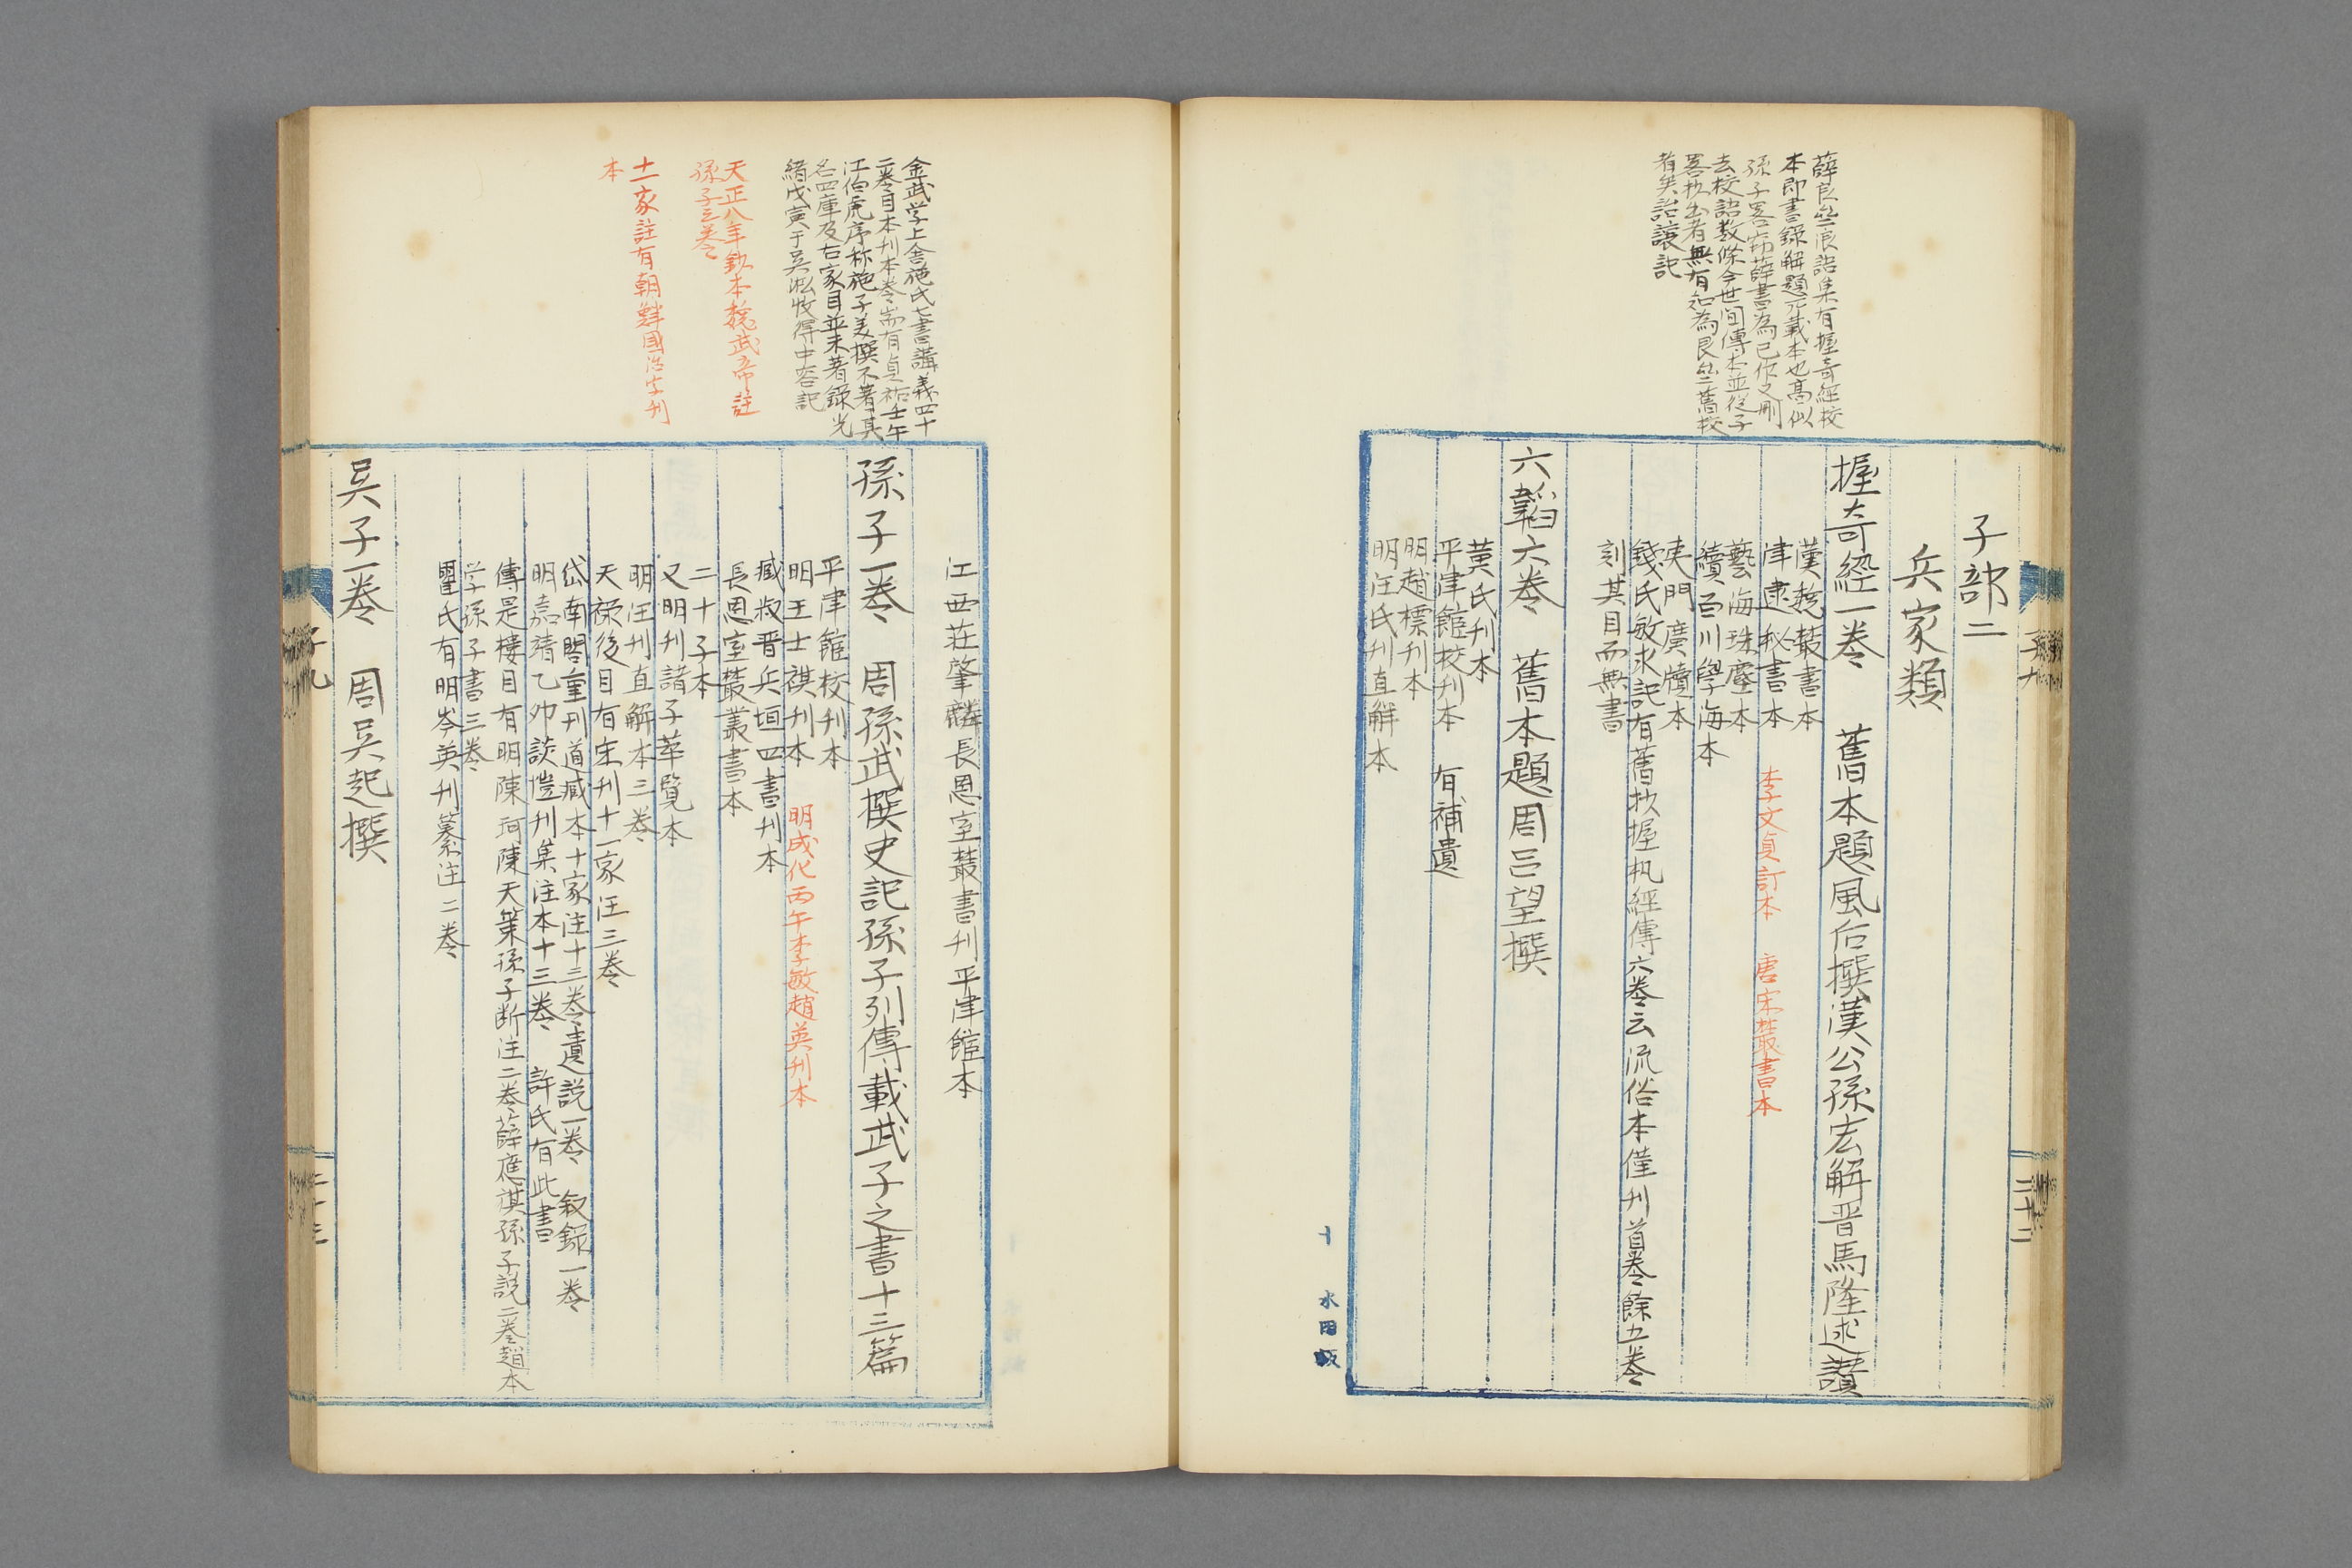 子部二
兵家類
握奇經一卷　舊本題風后撰漢公孫宏解晋馬隆述讚
漢魏叢書本
津逮秘書本　李文貞訂本　唐宋叢書本
藝海珠塵本
續百川學海本
夷門廣牘本
錢氏敏求記有舊抄握机經傳六卷云流俗本僅刊首卷餘五卷
刻其目而無書
六韜六卷　舊本題周呂望撰
黄氏刊本
平津館校刊本　有補遺
明趙標刊本
明汪氏刊直解本
薛艮齋浪語集有握奇經校
本即書錄解題所載本也高似
孫子畧窃薛書為己作又刪
去校語数條今世间傳本並從子
畧抄出者無有知為艮齋舊校
者矣詒讓記
子九
三十二
江西莊肇麟長恩室叢書刊平津館本
孫子一卷　周孫武撰史記孫子列傳載武子之書十三篇
平津館校刊本
明王士禛刊本　明成化丙午李敏趙英刊本
臧叔晋兵垣四書刊本
長恩室叢叢書本
二十子本
又明刊諸子萃覽本
明汪刊直解本三卷
天祿後目有宋刊十一家注三卷
岱南閣重刊道臧本十家注十三卷遺説一卷　叙錄一卷
明嘉靖乙夘談愷刊集注本十三卷　許氏有此書
傳是樓目有明陳珂陳天策孫子断注二卷薛應祺孫子説二卷趙本
学孫子書三卷
瞿氏有明岑英刊纂注二卷
吴子一卷　周吴起撰
金武学上舍施氏七書講義四十
二卷日本刊本卷耑有貞祐壬午
江伯虎序称施子美撰不著其
名四庫及右家目並未著錄光
緒戊寅于吴淞收得中容記
天正八年鈔本魏武帝註
孫子三卷
十一家註有朝鮮國活字刊
本
子九